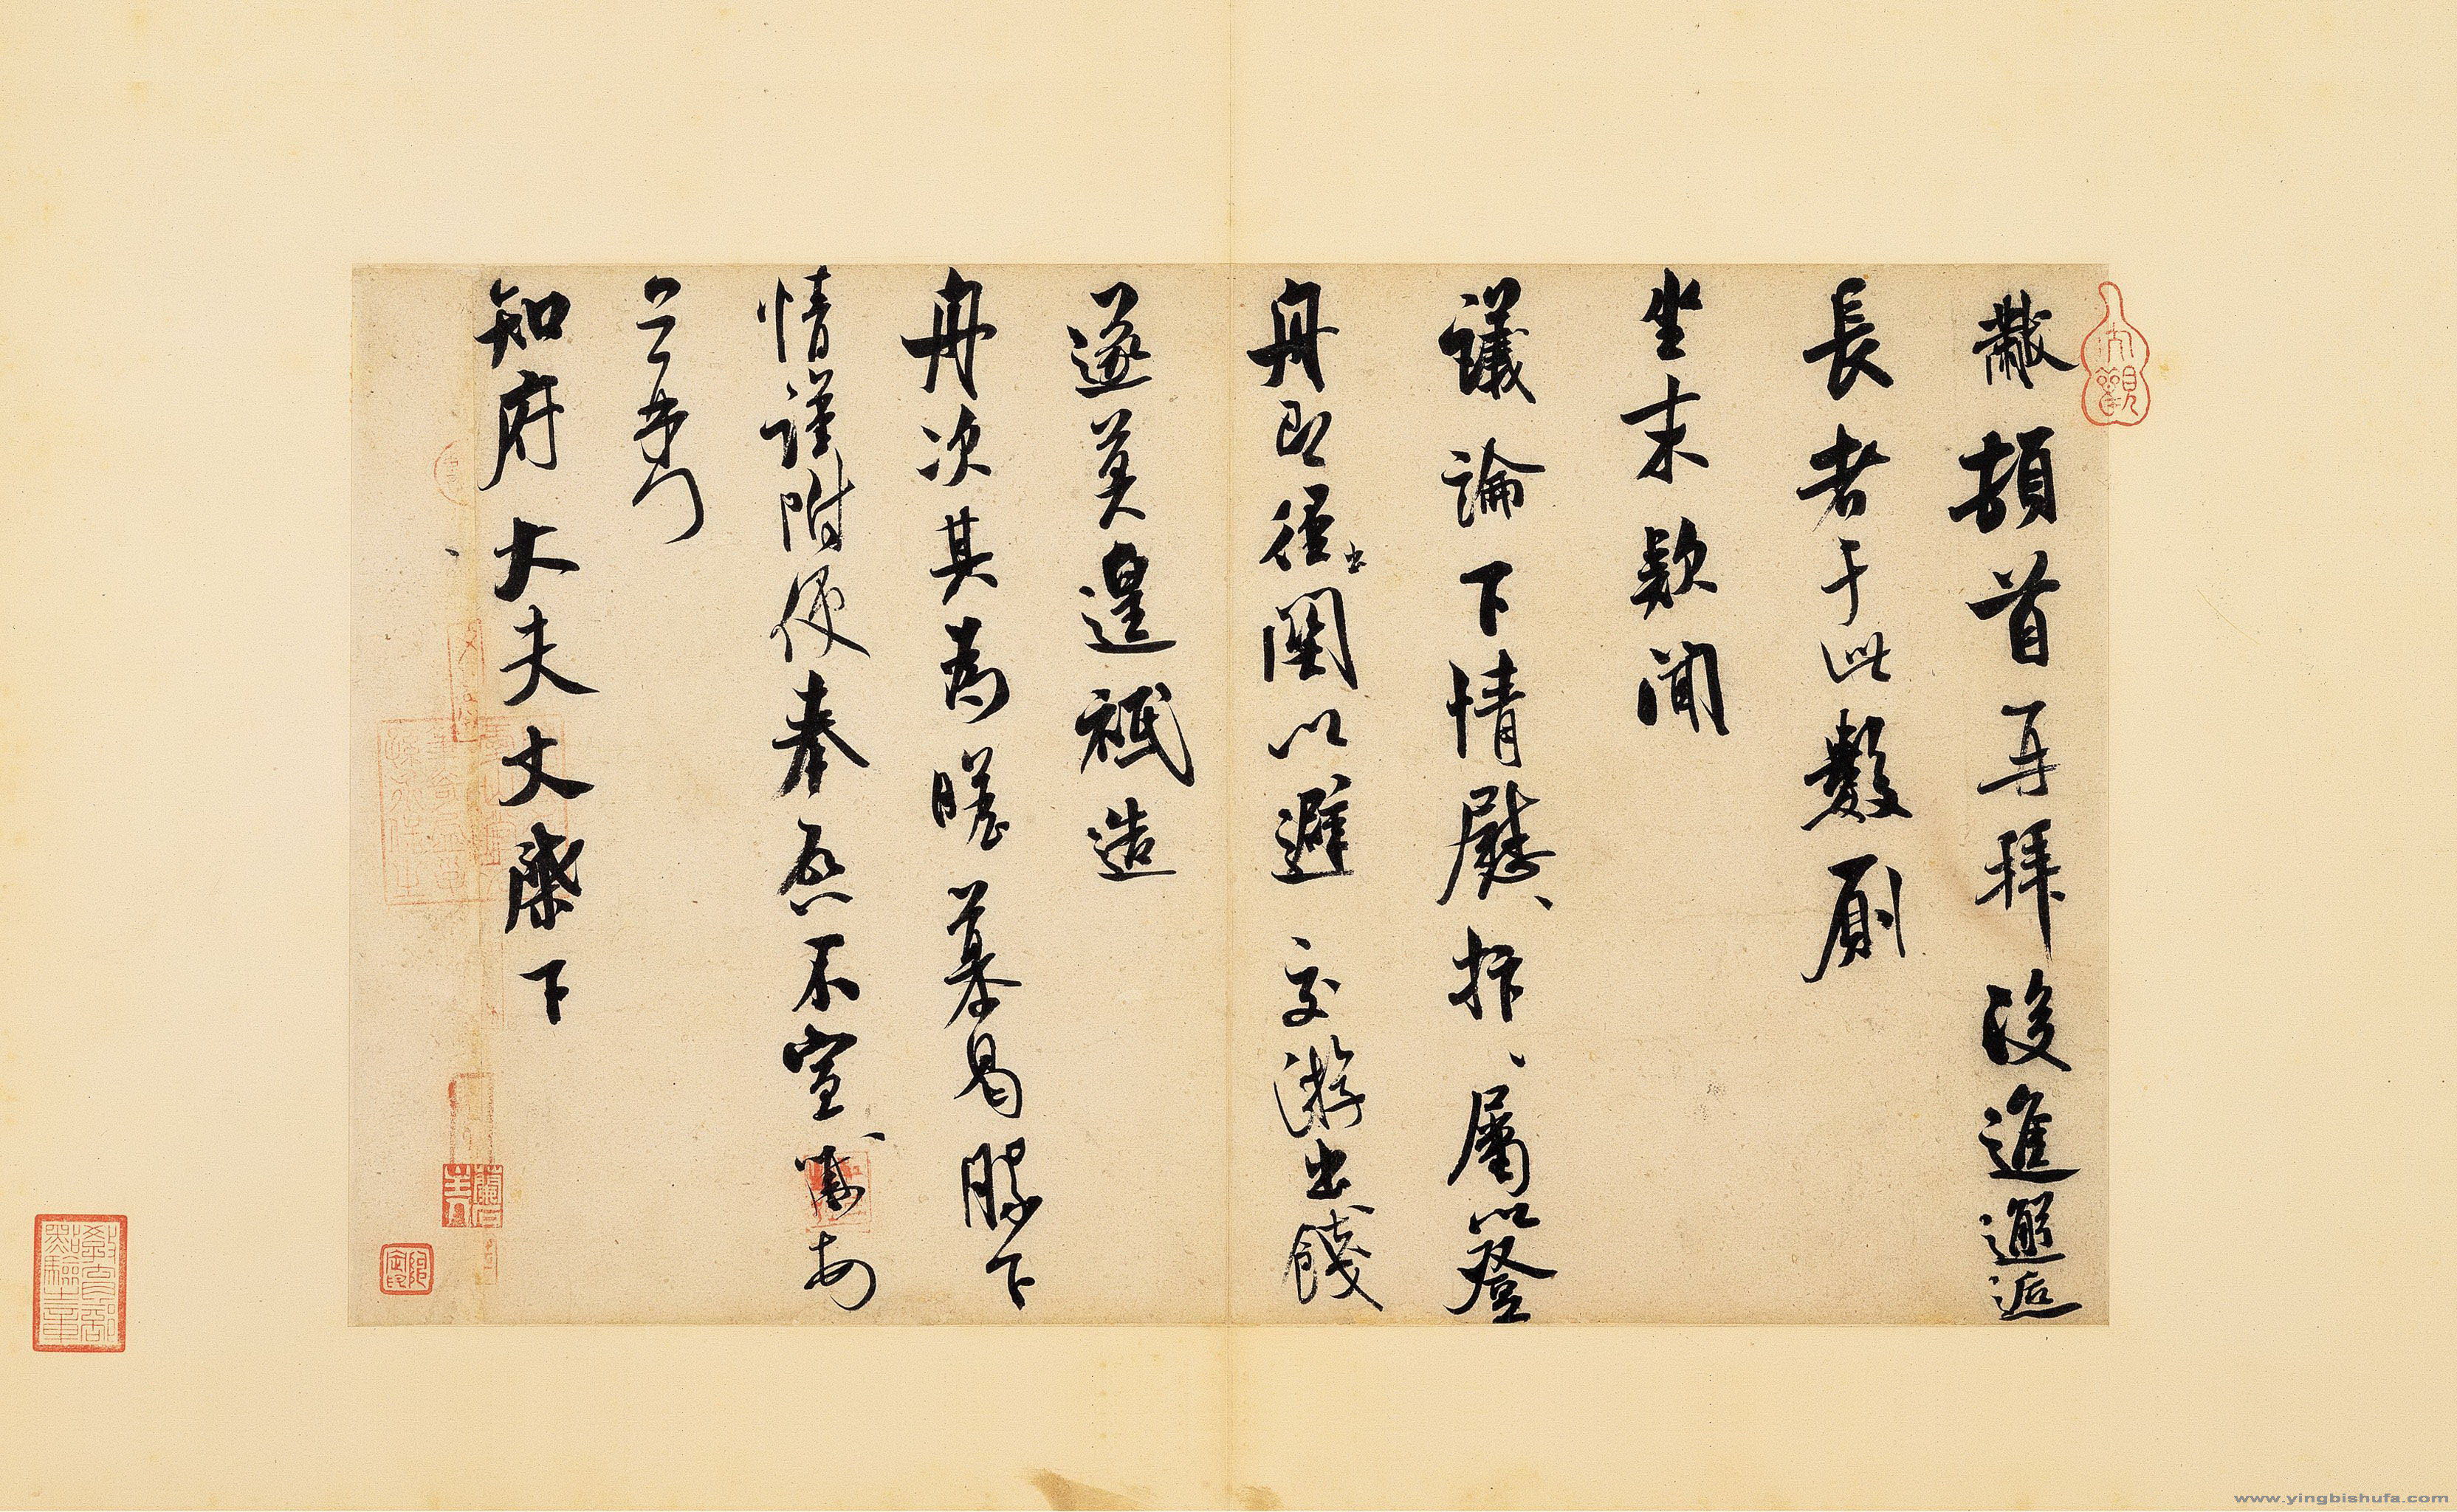 大觀
黻頓首再拜後進邂逅
長者于此數厠
坐末欵聞
議論下情慰、抃、屬以登
舟即徑出關以避交游出餞
遂莫遑祗造
舟次其為瞻慕曷勝下
情謹附便奉啓不宣、黻
知府大夫丈棨下
www.yingbishufa.com